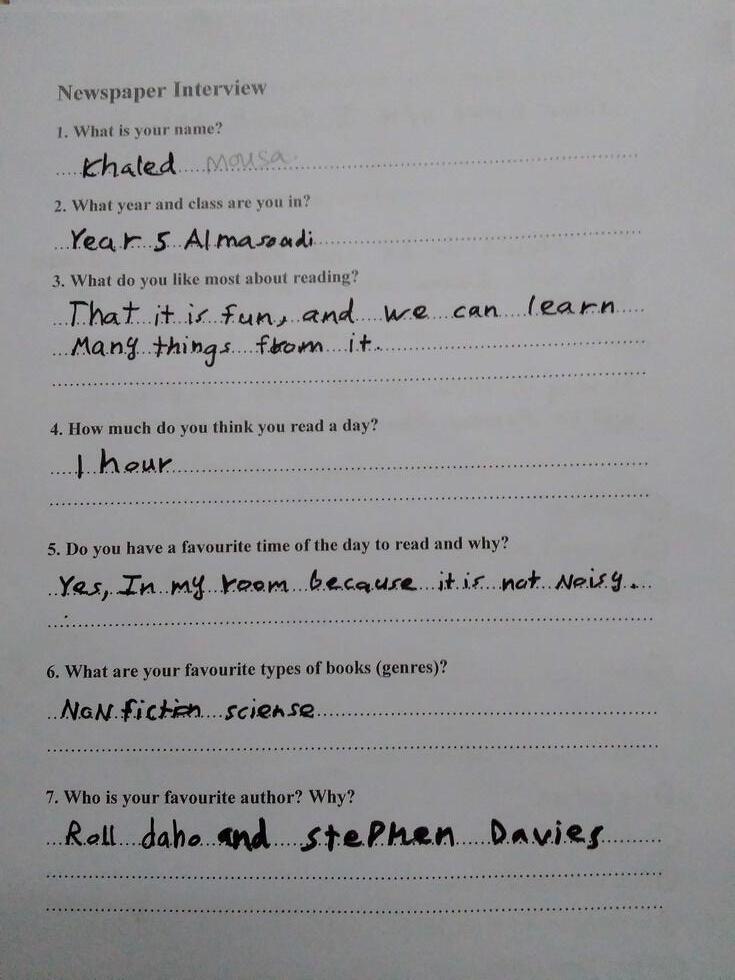 Newspaper Interview
1. What is your name?
Khaled Mousa.
2. What year and class are you in?
Year 5 Almasoudi
3. What do you like most about reading?
That it is fun, and we can learn
Many things from it.
4. How much do you think you read a day?
1 hour
5. Do you have a favourite time of the day to read and why?
Yes, In my room because it is not Noisy.
6. What are your favourite types of books (genres)?
NoN fiction sciense
7. Who is your favourite author? Why?
Roll daho and stePhen Davies